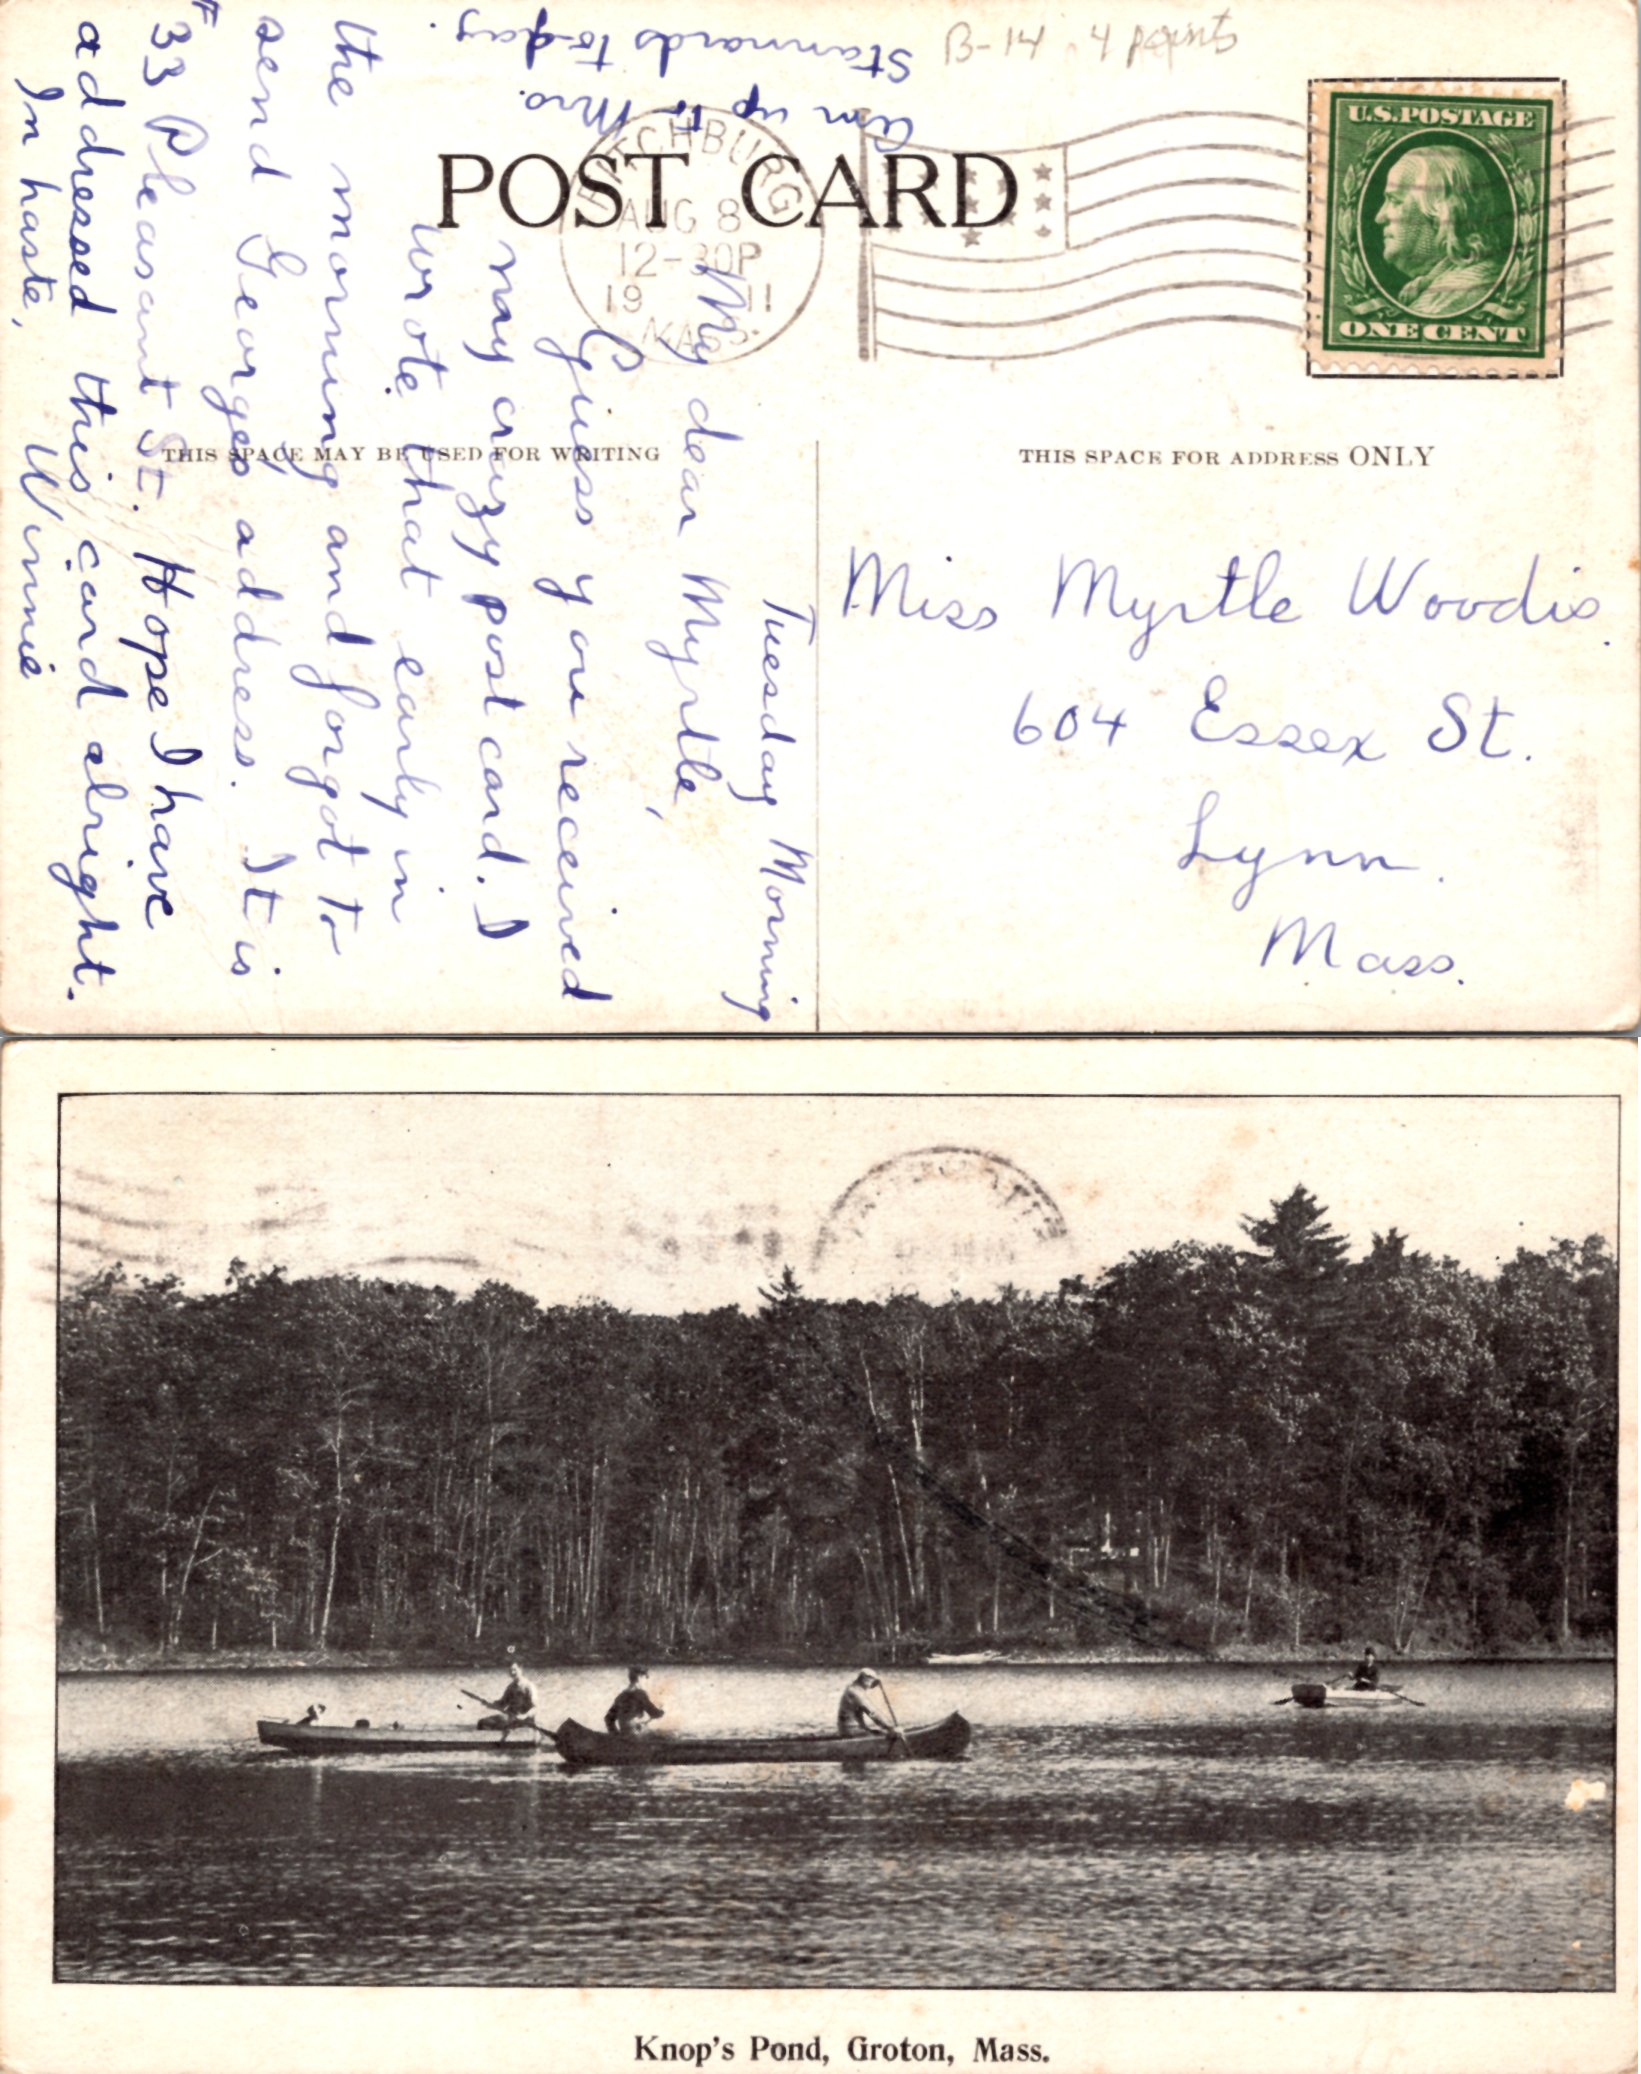 B-14 · 4 points
U.S. POSTAGE
ONE CENT
FITCHBURG
AUG 8
12-30P
19 11
MASS.
POST CARD
THIS SPACE MAY BE USED FOR WRITING
THIS SPACE FOR ADDRESS ONLY
Tuesday Morning
My dear Myrtle,
Guess you received
my crazy post card. I
wrote that early in
the morning and forgot to
send George's address. It is
#33 Pleasant St. Hope I have
addressed this card alright.
In haste, Winnie
Am up to Mrs.
Stannards to-day.
Miss Myrtle Woodis.
604 Essex St.
Lynn.
Mass.
Knop's Pond, Groton, Mass.